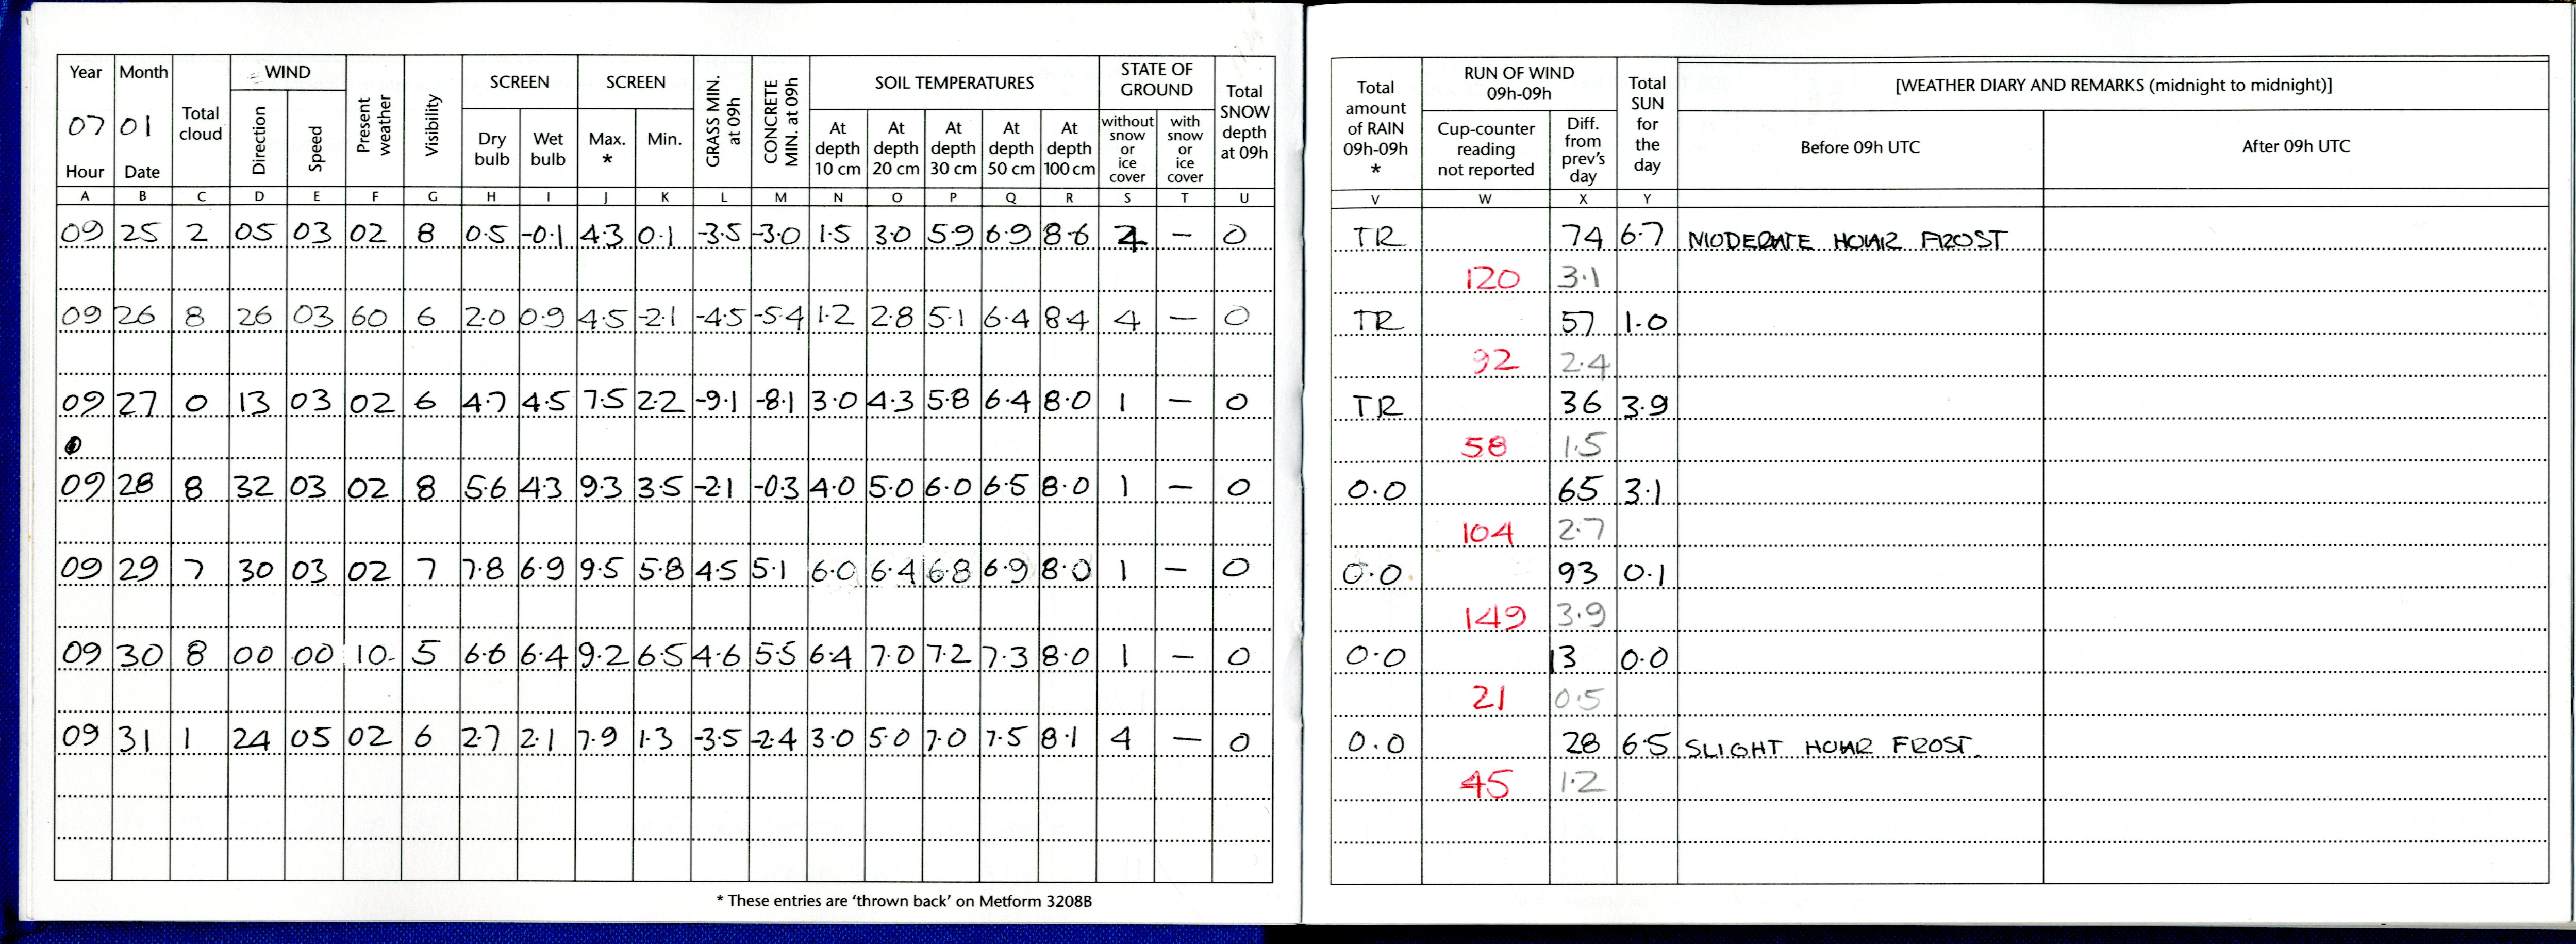 Year Month Total cloud WIND Present weather Visibility SCREEN SCREEN GRASS MIN. at 09h CONCRETE MIN. at 09h SOIL TEMPERATURES STATE OF GROUND Total SNOW depth at 09h
07 01 Direction Speed Dry bulb Wet bulb Max. * Min. At depth 10 cm At depth 20 cm At depth 30 cm At depth 50 cm At depth 100 cm without snow or ice cover with snow or ice cover
Hour Date
A B C D E F G H I J K L M N O P Q R S T U
09 25 2 05 03 02 8 0.5 -0.1 4.3 0.1 -3.5 -3.0 1.5 3.0 5.9 6.9 8.6 4 — 0
09 26 8 26 03 60 6 2.0 0.9 4.5 -2.1 -4.5 -5.4 1.2 2.8 5.1 6.4 8.4 4 — 0
09 27 0 13 03 02 6 4.7 4.5 7.5 2.2 -9.1 -8.1 3.0 4.3 5.8 6.4 8.0 1 — 0
09 28 8 32 03 02 8 5.6 4.3 9.3 3.5 -2.1 -0.3 4.0 5.0 6.0 6.5 8.0 1 — 0
09 29 7 30 03 02 7 7.8 6.9 9.5 5.8 4.5 5.1 6.0 6.4 6.8 6.9 8.0 1 — 0
09 30 8 00 00 10 5 6.6 6.4 9.2 6.5 4.6 5.5 6.4 7.0 7.2 7.3 8.0 1 — 0
09 31 1 24 05 02 6 2.7 2.1 7.9 1.3 -3.5 -2.4 3.0 5.0 7.0 7.5 8.1 4 — 0
* These entries are ‘thrown back’ on Metform 3208B
Total amount of RAIN 09h-09h * RUN OF WIND 09h-09h Total SUN for the day [WEATHER DIARY AND REMARKS (midnight to midnight)]
Cup-counter reading not reported Diff. from prev's day Before 09h UTC After 09h UTC
V W X Y
TR 74 6.7 MODERATE HOAR FROST
120 3.1
TR 57 1.0
92 2.4
TR 36 3.9
58 1.5
0.0 65 3.1
104 2.7
0.0 93 0.1
149 3.9
0.0 13 0.0
21 0.5
0.0 28 6.5 SLIGHT HOAR FROST.
45 1.2